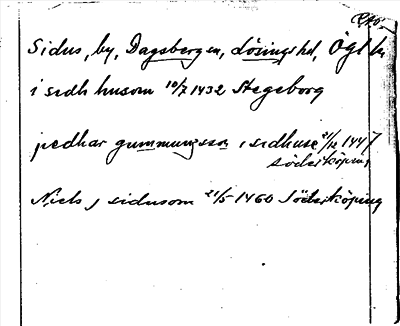 Sidus, by, Dagsbergen, Lösings hd, Ögl ln
i sidh husom 10/7 1432 Stegeborg
pedhar gummungsson i sidhuse 21/12 1447
söderköping
Niels j sidusom 21/5 1460 Söderköping